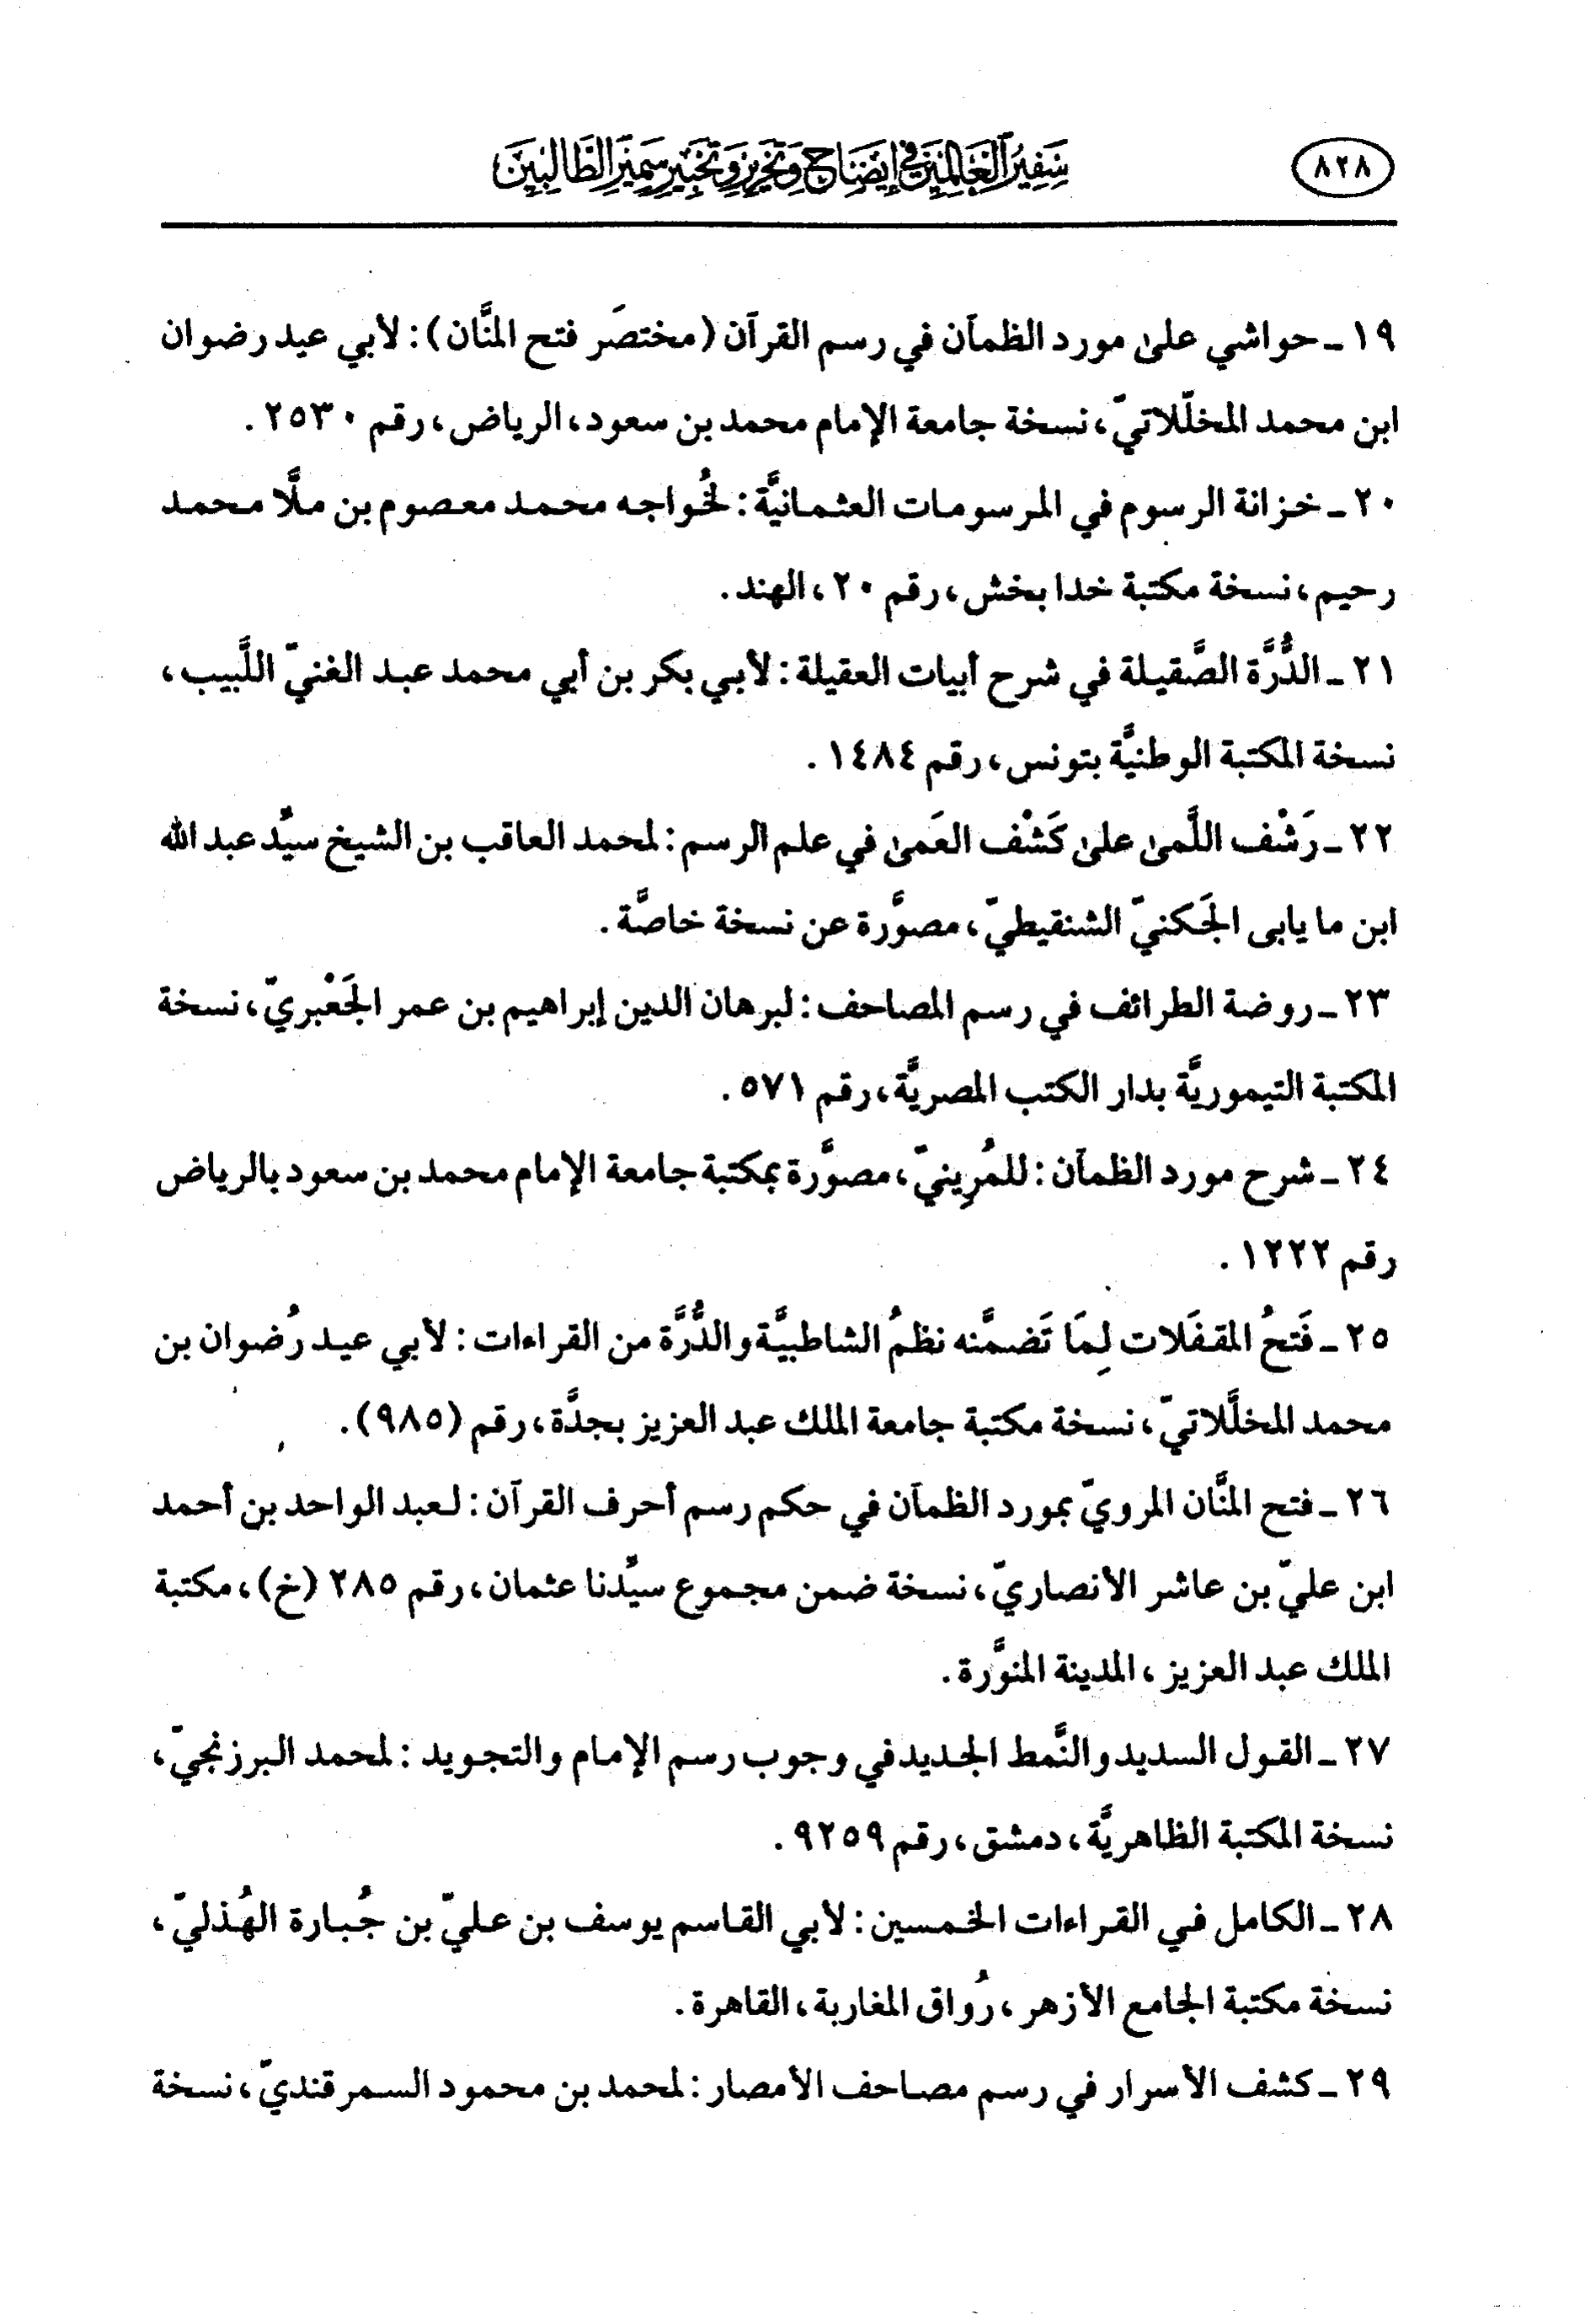 ٨٢٨
سَفِيرُ العَالِمِينَ فِي إِيضَاحِ وَتَحْرِيرِ وَتَحْبِيرِ سَمِيرِ الطَّالِبِينَ
١٩ ـ حواشي علىٰ مورد الظمآن في رسم القرآن (مختصَر فتح المنَّان): لأبي عيد رضوان
ابن محمد المخلّلاتيّ، نسخة جامعة الإمام محمد بن سعود، الرياض، رقم ٢٥٣٠ .
٢٠ ـ خزانة الرسوم في المرسومات العثمانيَّة: لخُواجه محمد معصوم بن ملَّا محمد
رحيم، نسخة مكتبة خدا بخش، رقم ٢٠، الهند.
٢١ ـ الدُّرَّة الصَّقيلة في شرح أبيات العقيلة: لأبي بكر بن أبي محمد عبد الغنيّ اللَّبيب،
نسخة المكتبة الوطنيَّة بتونس، رقم ١٤٨٤ .
٢٢ ـ رَشْف اللَّمىٰ علىٰ كَشْف العَمىٰ في علم الرسم: لمحمد العاقب بن الشيخ سيِّد عبد الله
ابن ما يابى الجَكنيّ الشنقيطيّ، مصوَّرة عن نسخة خاصَّة.
٢٣ ـ روضة الطرائف في رسم المصاحف: لبرهان الدين إبراهيم بن عمر الجَعْبريّ، نسخة
المكتبة التيموريَّة بدار الكتب المصريَّة، رقم ٥٧١ .
٢٤ ـ شرح مورد الظمآن: للمُرِينيّ، مصوَّرة بمكتبة جامعة الإمام محمد بن سعود بالرياض
رقم ١٢٢٢ .
٢٥ ـ فَتحُ المقفَلات لِمَا تَضمَّنه نظمُ الشاطبيَّة والدُّرَّة من القراءات: لأبي عيد رُضوان بن
محمد المخلَّلاتيّ، نسخة مكتبة جامعة الملك عبد العزيز بجدَّة، رقم (٩٨٥).
٢٦ ـ فتح المنَّان المرويّ بمورد الظمآن في حكم رسم أحرف القرآن: لعبد الواحد بن أحمد
ابن عليّ بن عاشر الأنصاريّ، نسخة ضمن مجموع سيِّدنا عثمان، رقم ٢٨٥ (خ)، مكتبة
الملك عبد العزيز، المدينة المنوَّرة.
٢٧ ـ القول السديد والنَّمط الجديد في وجوب رسم الإمام والتجويد: لمحمد البرزنجيّ،
نسخة المكتبة الظاهريَّة، دمشق، رقم ٩٢٥٩ .
٢٨ ـ الكامل في القراءات الخمسين: لأبي القاسم يوسف بن عليّ بن جُبارة الهُذليّ،
نسخة مكتبة الجامع الأزهر، رُواق المغاربة، القاهرة.
٢٩ ـ كشف الأسرار في رسم مصاحف الأمصار: لمحمد بن محمود السمرقنديّ، نسخة